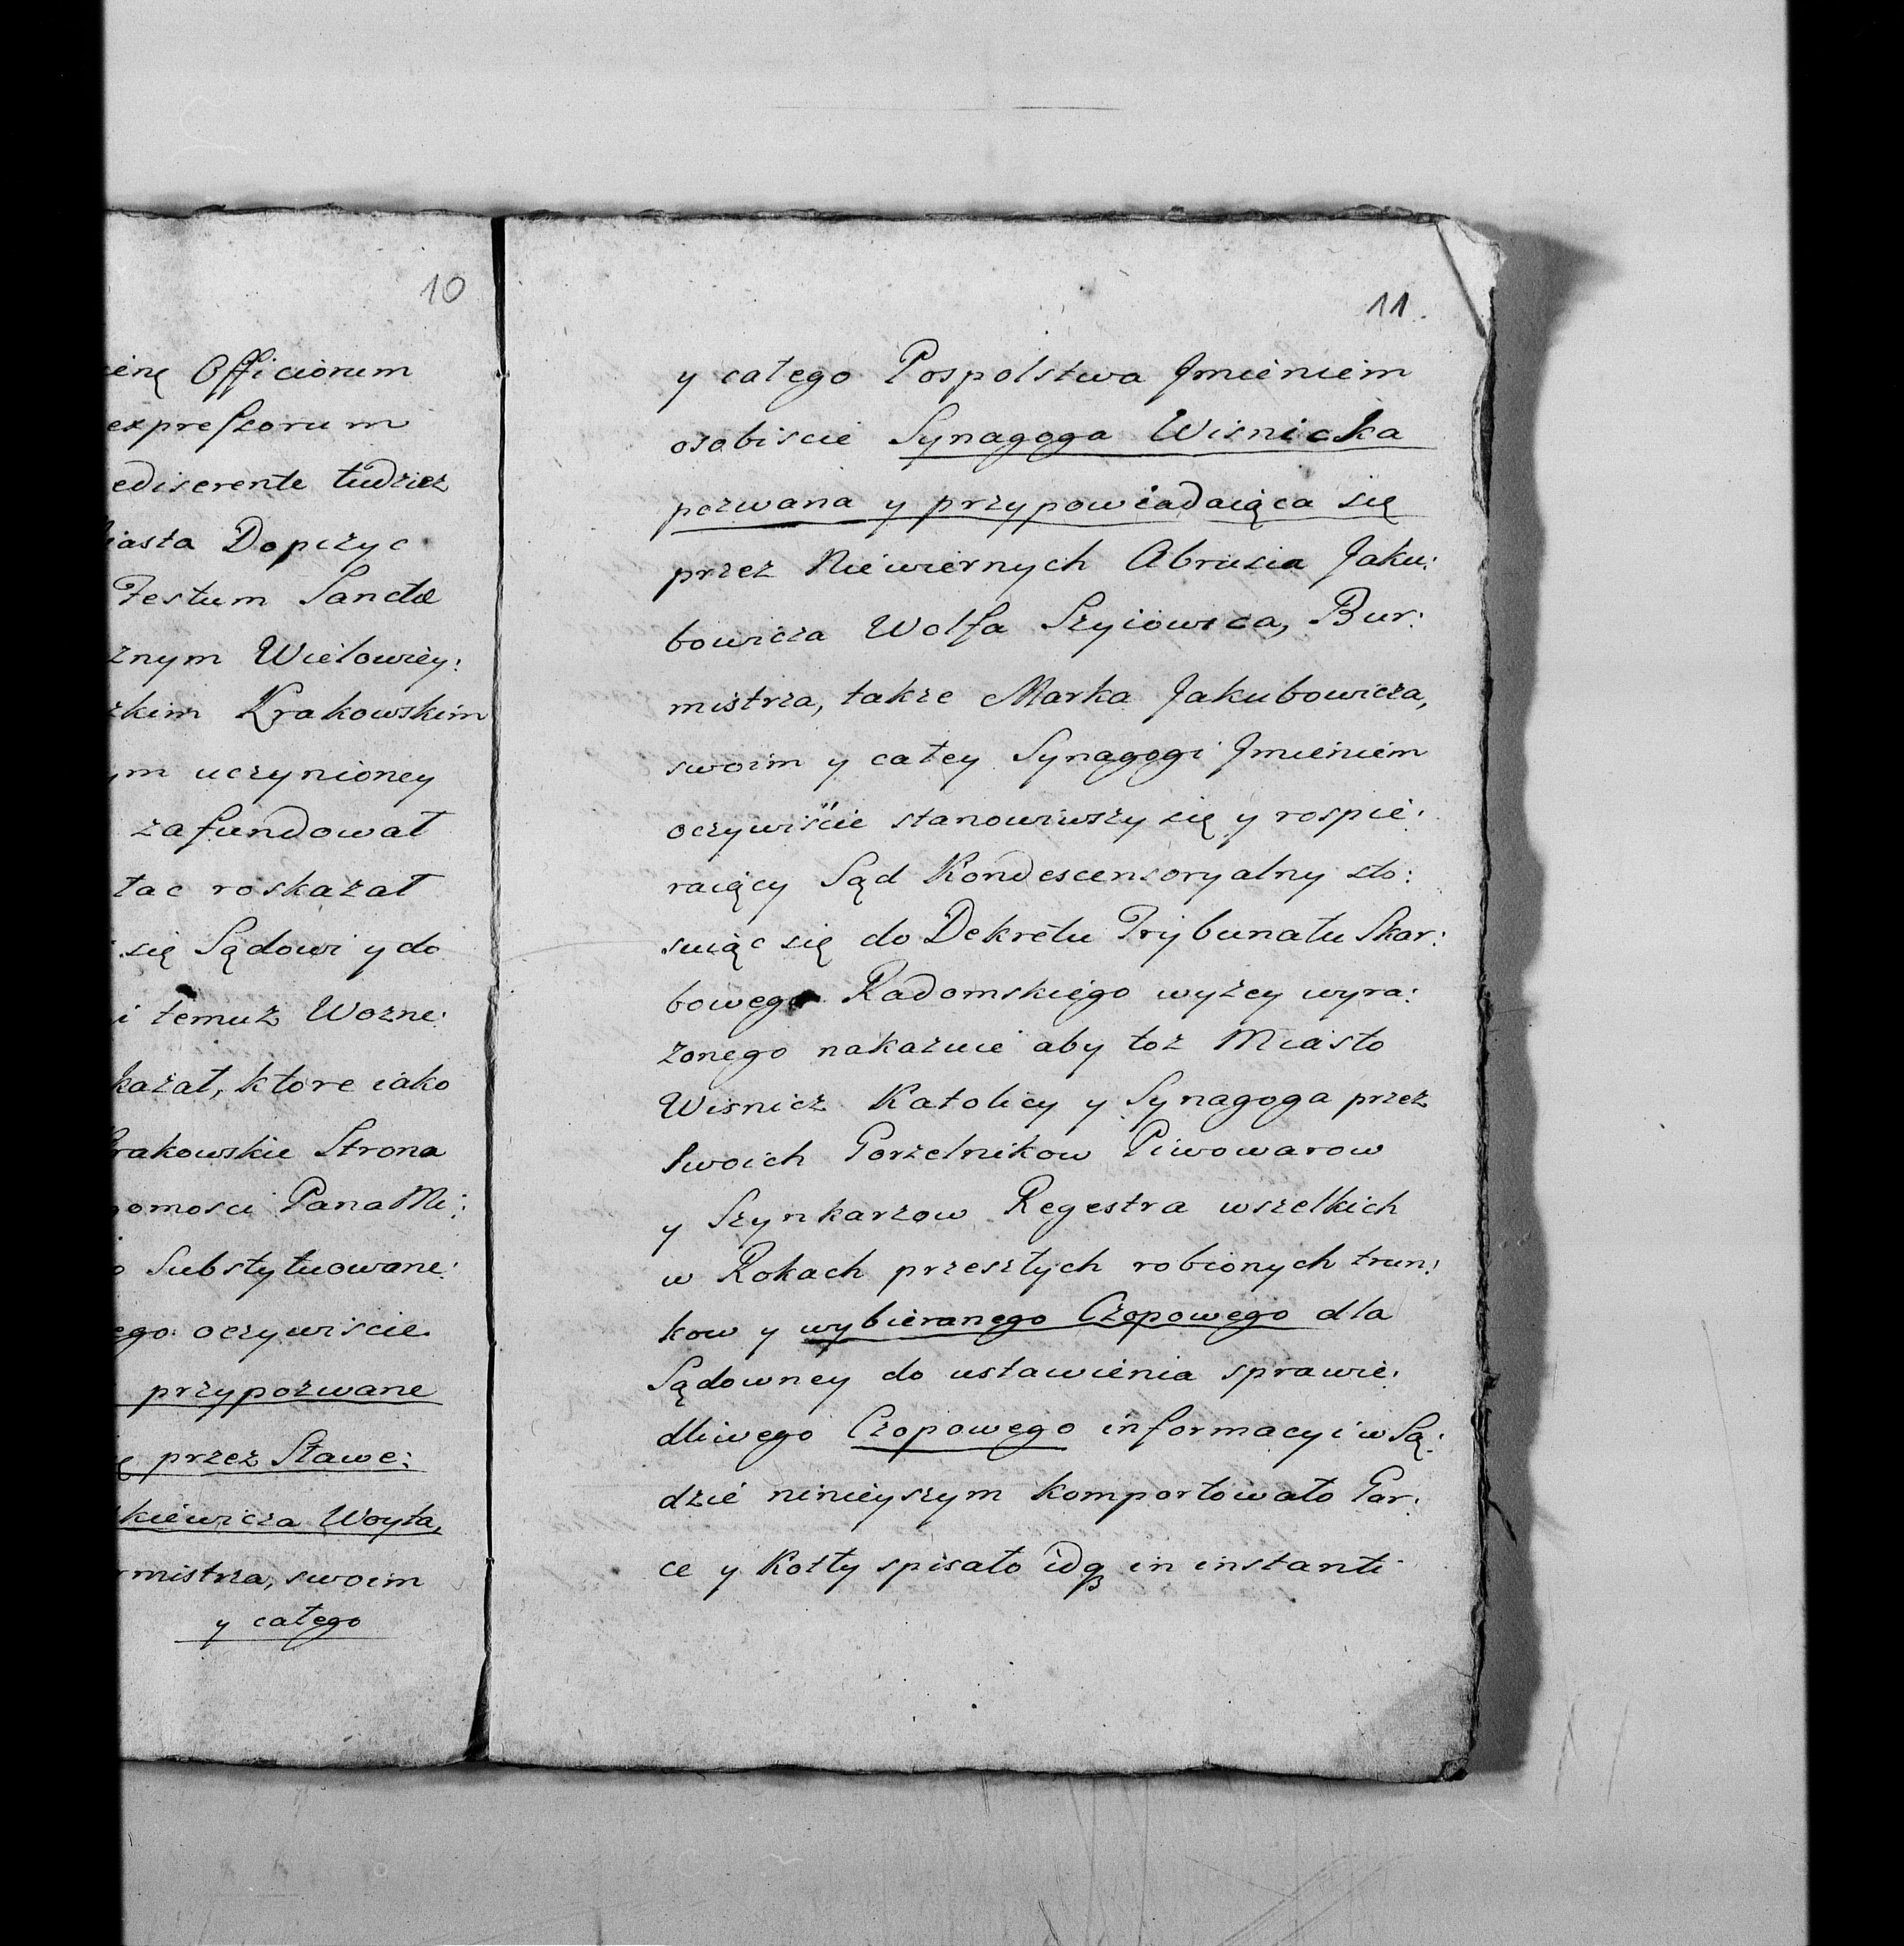 10
ienę Officiorum
expressorum
ediserente tudziez
iasta Dopczyc
Festum Sanctæ
znym Wielowiey:
zkim Krakowskim
ym uczynioney
zafundował
tac roskazał
się Sądowi y do
i temuz Wozne:
kazał, ktore iako
rakowskie Strona
omosci Pana Mi:
o Substytuowane:
ego oczywiscie
przypozwane
ę przez Sławe:
kiewicza Woyta,
rmistrza, swoim
y całego
11.
y całego Pospolstwa Jmieniem
osobiscie Synagoga Wisnicka
pozwana y przypowiadaiąca się
przez Niewiernych Abrusia Jaku:
bowicza Wolfa Szyiowica, Bur:
mistrza, takze Marka Jakubowicza,
swoim y całey Synagogi Jmieniem
oczywiście stanowiwszy się y rospie:
raiący Sąd Kondescensoryalny sto:
suiąc się do Dekretu Trybunału Skar:
bowego Radomskiego wyzey wyra:
zonego nakazuie aby toz Miasto
Wisnicz Katolicy y Synagoga przez
Swoich Gorzelnikow Piwowarow
y Szynkarzow Regestra wszelkich
w Rokach przeszłych robionych trun:
kow y wybieranego Czopowego dla
Sądowney do ustawienia sprawie:
dliwego Czopowego informacyi w Są:
dzie ninieyszym komportowało Gar:
ce y Kotły spisało idq in instanti